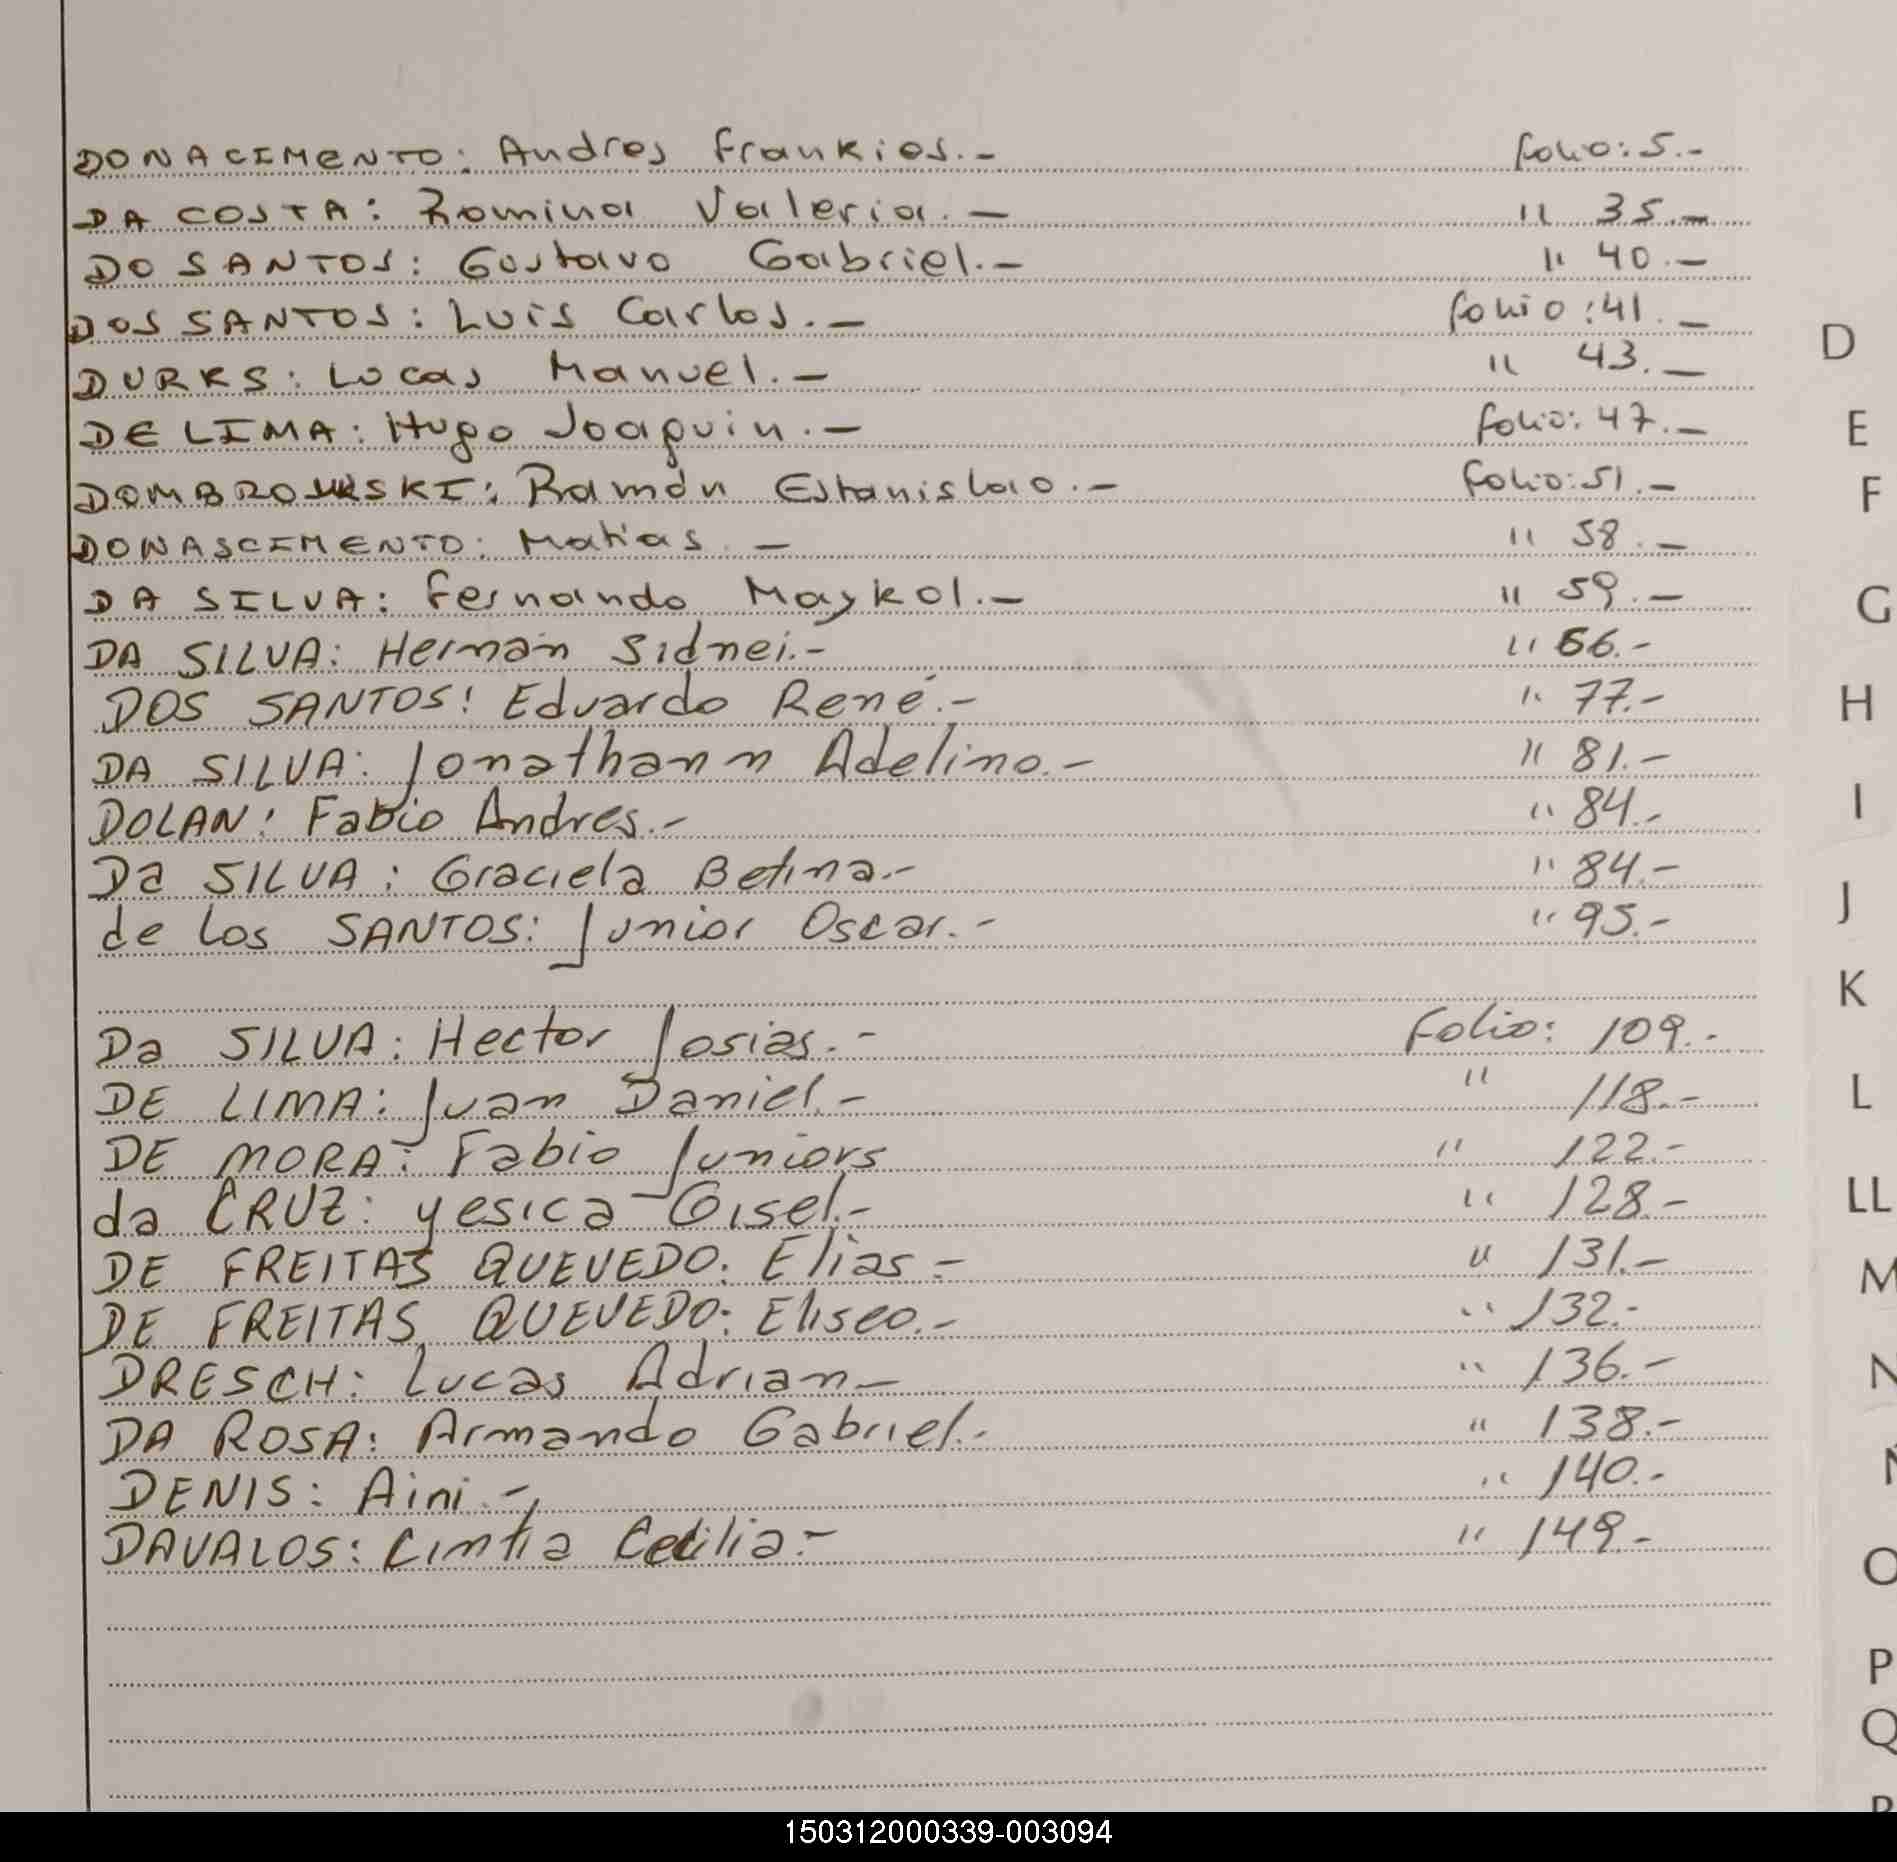 DONACIMENTO: Andres Frankios.- folio: 5.-
DA COSTA: Romina Valeria.- " 35.-
DO SANTOS: Gustavo Gabriel.- " 40.-
DOS SANTOS: Luis Carlos.- folio: 41.-
DURKS: Lucas Manuel.- " 43.-
DE LIMA: Hugo Joaquin.- folio: 47.-
DOMBROWSKI: Ramón Estanislao.- folio: 51.-
DONASCIMENTO: Matias.- " 58.-
DA SILVA: Fernando Maykol.- " 59.-
DA SILVA: Hernán Sidnei.- " 66.-
DOS SANTOS: Eduardo René.- " 77.-
DA SILVA: Jonathann Adelino.- " 81.-
DOLAN: Fabio Andres.- " 84.-
Da SILVA: Graciela Betina.- " 84.-
de los SANTOS: Junior Oscar.- " 95.-
Da SILVA: Hector Josias.- Folio: 109.-
DE LIMA: Juan Daniel.- " 118.-
DE MORA: Fabio Juniors " 122.-
da CRUZ: yesica Gisel.- " 128.-
DE FREITAS QUEVEDO: Elias.- " 131.-
DE FREITAS QUEVEDO: Eliseo.- " 132.-
DRESCH: Lucas Adrian- " 136.-
DA ROSA: Armando Gabriel.- " 138.-
DENIS: Aini.- " 140.-
DAVALOS: Cintia Cecilia.- " 149.-
D
E
F
G
H
I
J
K
L
LL
M
N
Ñ
O
P
Q
R
150312000339-003094